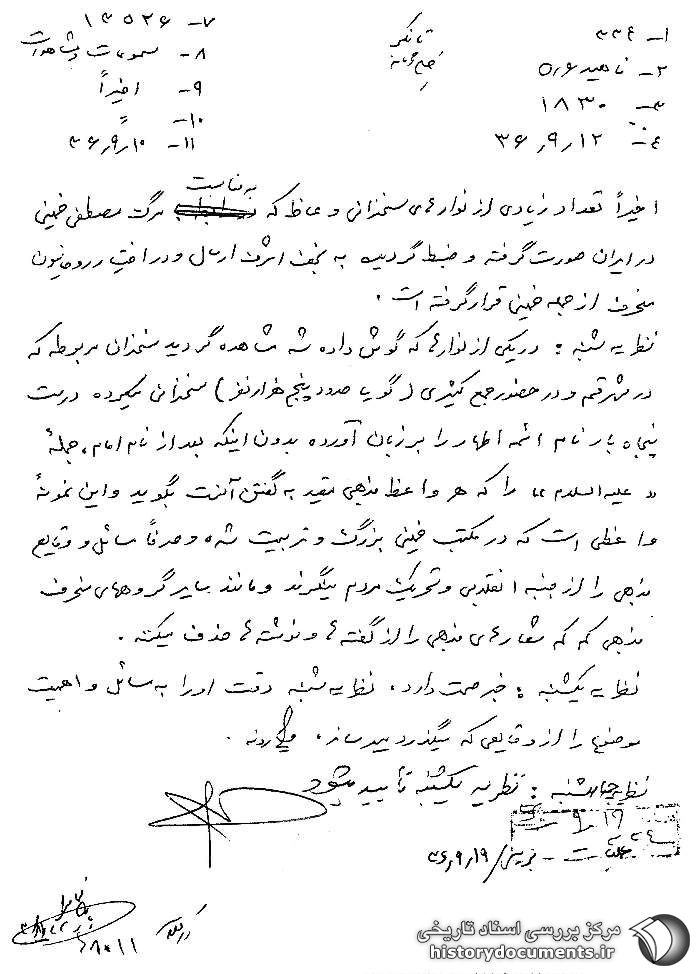 ۱- ۳۳۴
۲- ناهید ۵۰۶
۳- ۱۸۳۰
۴- ۳۶٫۹٫۱۲
۷- ۱۳۵۲۶
۸- مسموعات و مشاهدات
۹- اخیراً
۱۰-
۱۱- ۳۶٫۹٫۱۰
اخیراً تعداد زیادی از نوارهای سخنرانی وعاظ که به مناسبت مرگ مصطفی خمینی
در ایران صورت گرفته و ضبط گردیده به نجف اشرف ارسال و در اختیار روحانیون
منحرف از جمله خمینی قرار گرفته است .
نظریه شنبه : در یکی از نوارهائی که گوش داده شد مشاهده گردید سخنران مربوطه که
در شهر قم و در حضور جمع کثیری (گویا حدود پنجهزار نفر) سخنرانی میکرده درست
پنجاه بار نام ائمه اطهار را بر زبان آورده بدون اینکه بعد از نام امام، جملهٔ
«علیه السلام» را که هر واعظ مذهبی مقید به گفتن آنست بگوید و این نمونهٔ
واعظی است که در مکتب خمینی بزرگ و تربیت شده و صرفاً مسائل و وقایع
مذهبی را از جنبه انقلابی و تحریک مردم مینگرند و مانند سایر گروههای منحرف
مذهبی کم کم شعارهای مذهبی را از گفته ها و نوشته ها حذف میکنند .
نظریه یکشنبه : خبر صحت دارد، نظریه شنبه دقت او را به مسائل و اهمیت
موضوع را از وقایعی که میگذرد میرساند،
نظریه چهارشنبه : نظریه یکشنبه تأیید میشود
۳۶٫۹٫۱۹
مرکز بررسی اسناد تاریخی
historydocuments.ir